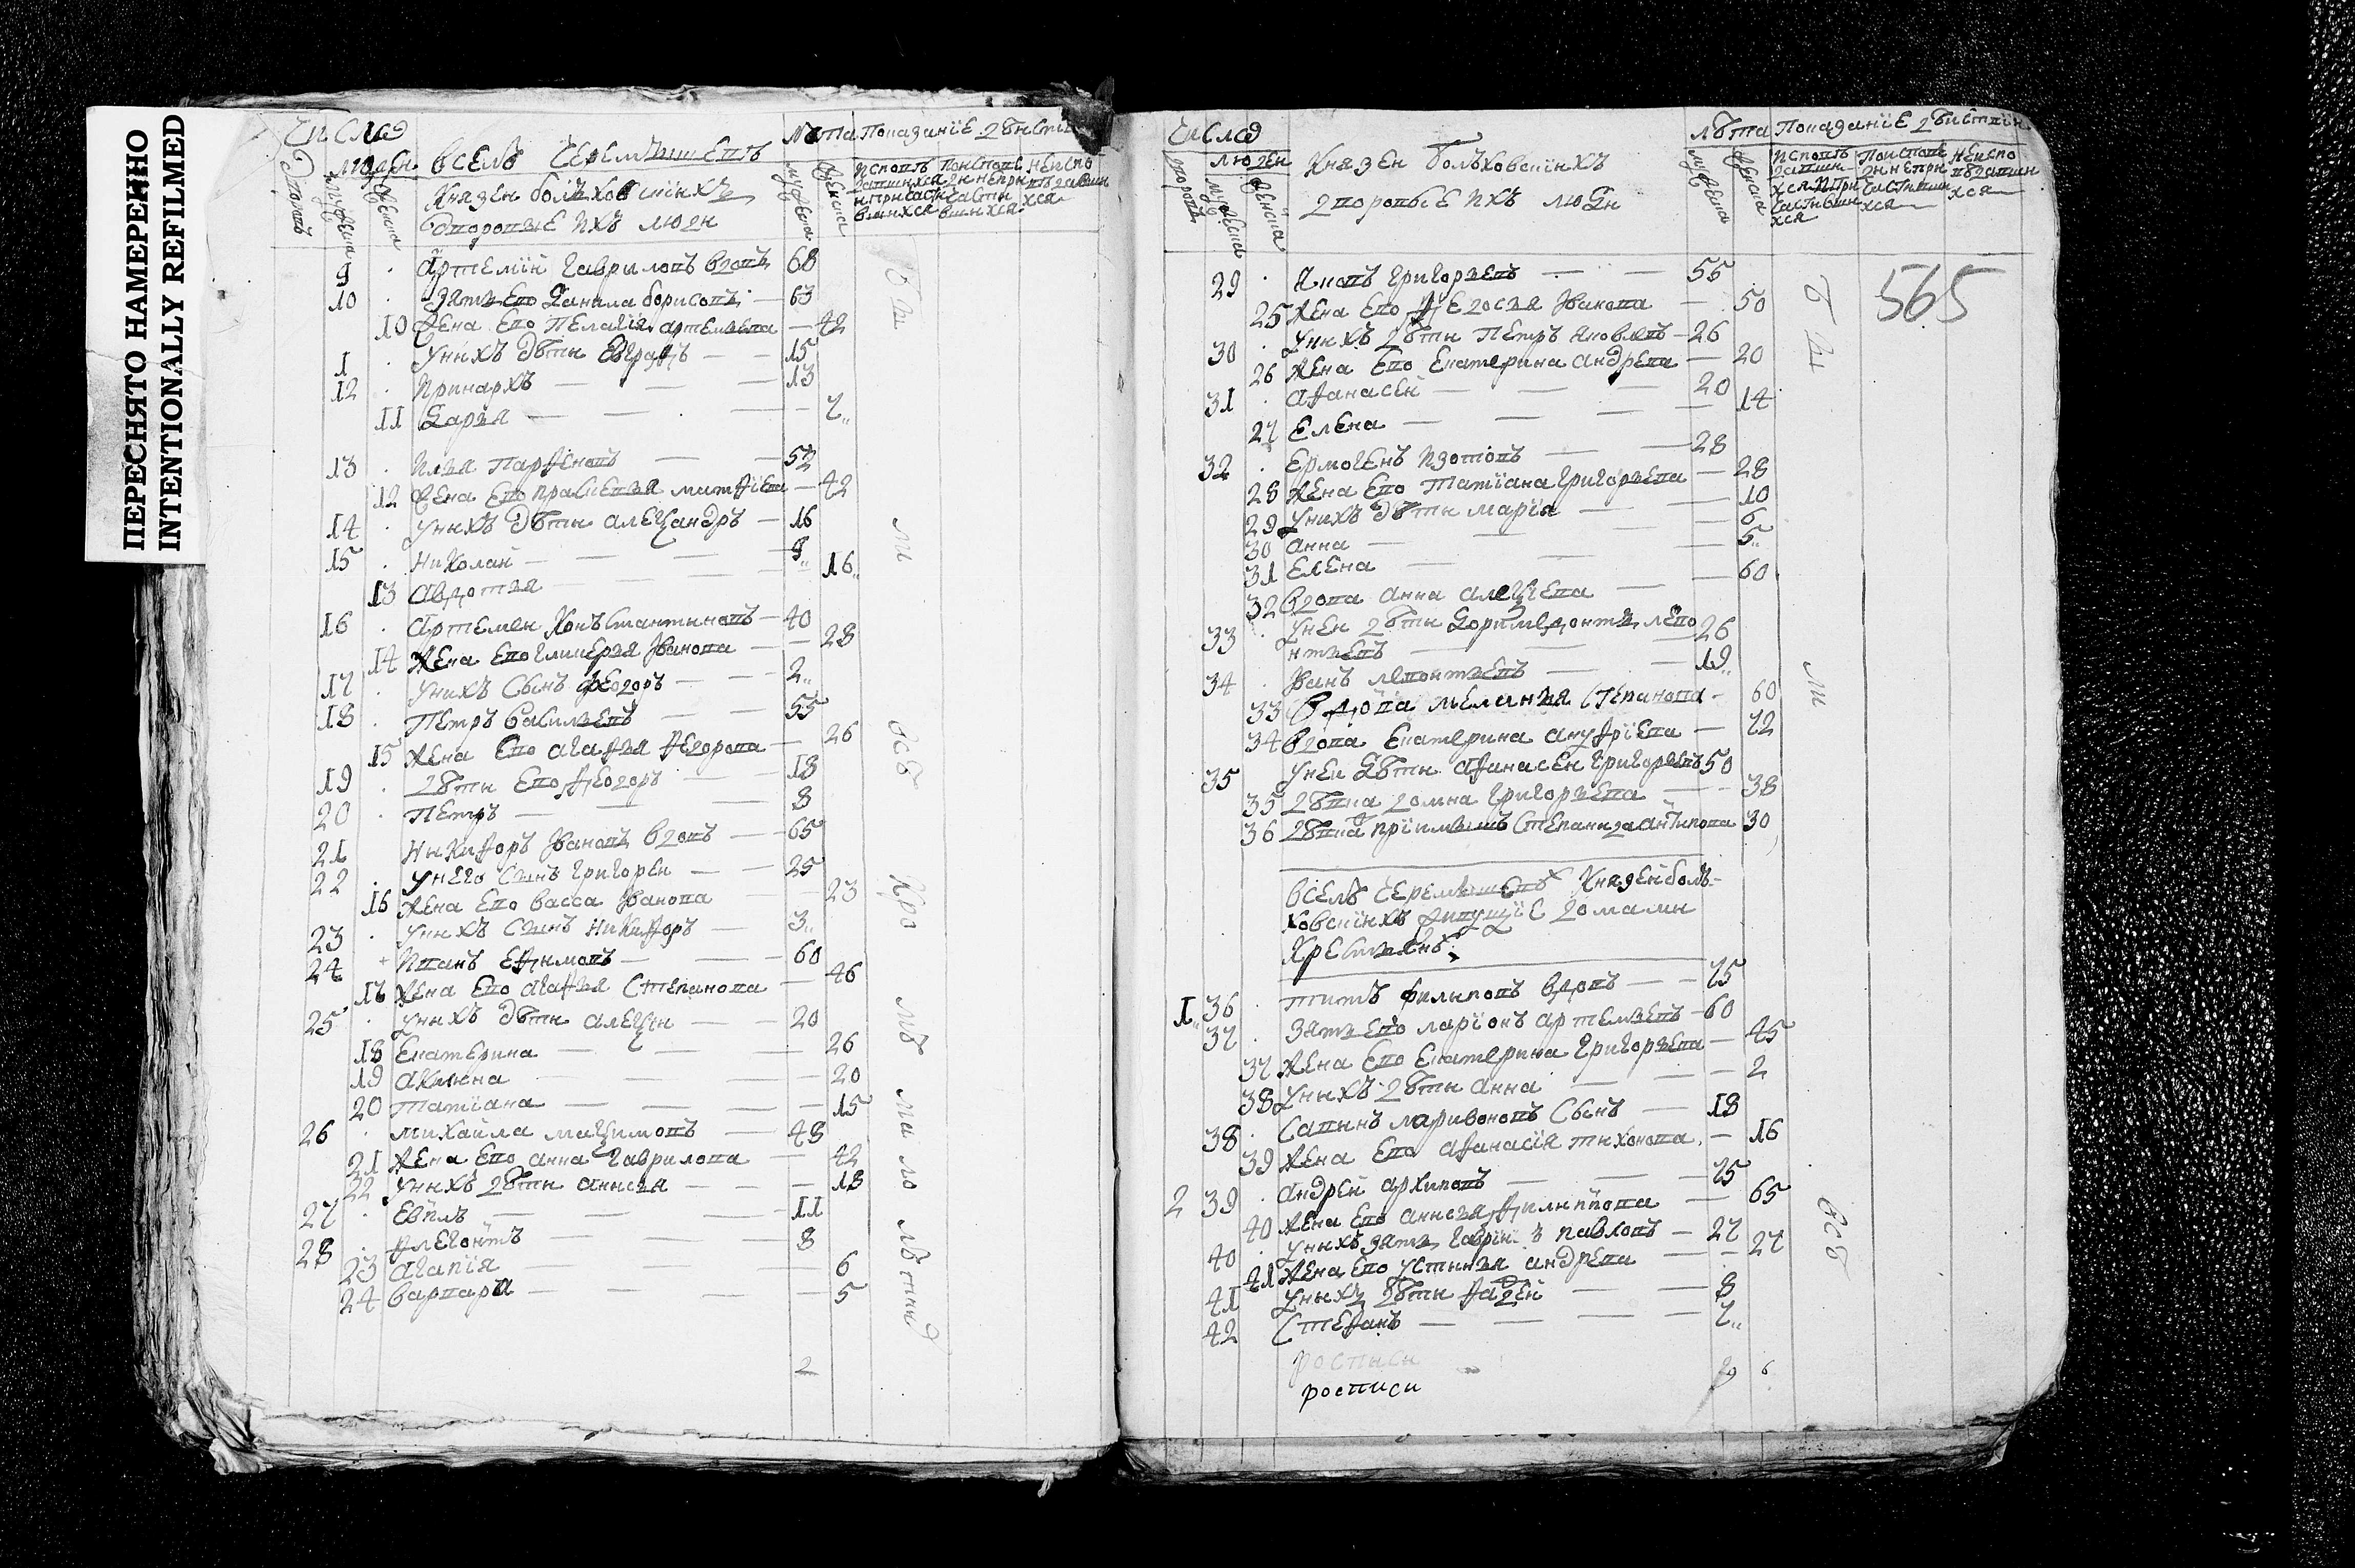 ПЕРЕСНЯТО НАМЕРЕННО
INTENTIONALLY REFILMED
Число людей
Въселѣ Черемышевѣ
Лѣта
Показанїе дѣйств
Князей болъховскихъ
дворовые ихъ люди
9 Артемїй Гавриловъ вдовъ 68
10 Зять Ево Данила борисовъ 63
10 Жена Ево Пелагїя артемьева 42
1 Унихъ дѣти Евграфъ 15
12 Иринархъ 13
11 Дарья 7
13 Илья Парфеновъ 52
12 Жена Ево Прасковья матфїева 42
14 Унихъ дѣти алеѯандръ 16
15 Николай 9
13 Авдотья 16
16 Артемен Конъстантиновъ 40
14 Жена Ево Гликерья Иванова 28
17 Унихъ Сынъ Феодоръ 2
18 Петръ Васильевъ 55
15 Жена Ево агафья Федорова 26
19 дѣти Ево Феодоръ 18
20 Петръ 8
21 Никифоръ Ивановъ вдовъ 65
22 Унего Сынъ Григорей 25
16 Жена Ево васса Иванова 23
23 Унихъ Сынъ Никифоръ 3
24 Иванъ Ефимовъ 60
17 Жена Ево агафья Степанова 46
25 Унихъ дѣти алеѯїи 20
18 Екатерина 26
19 акилина 20
20 Татїана 15
26 михайла маѯимовъ 48
21 Жена Ево анна Гаврилова 42
22 Унихъ дѣти анисья 18
27 Евплъ 11
28 Флегонтъ 8
23 Агапїя 6
24 варвара 5
2
Число людей
Князей болъховскїихъ
дворовые ихъ люди
лѣта
Показанїе дѣйствїй
565
29 Яковъ Григорьевъ 55
25 Жена Ево Федосья Иванова 50
30 Унихъ дѣти Петръ Яковлевъ 26
26 Жена Ево Екатерина андреева 20
31 афанасей 20
27 Елена 14
32 Ермогенъ Изотовъ 28
28 Жена Ево Татїана Григорьева 28
29 Унихъ дѣти марїя 10
30 анна 6
31 Елена 5
32 вдова анна алеѯїева 60
33 Унеи дѣти Доримедонтъ лео
нтьевъ 26
34 Иванъ леонтьевъ 19
33 Вдова меланья Степанова 60
34 вдова Екатерина ануфрїева 72
35 Унеи дѣти афанасей Григорьевъ 50
35 дѣвка домна Григорьева 38
36 дѣвка Степанида антипова 30
Вселѣ Черемышевѣ Князей боль-
ховскїихъ живущїе домами
Крестьянъ
1 36 Титъ Филиповъ вдовъ 75
37 Зять Ево ларїонъ артемьевъ 60
37 Жена Ево Екатерина Григорьева 45
38 Унихъ дѣти анна 2
38 Савинъ ларивоновъ Сынъ 18
39 Жена Ево афанасїя тихонова 16
2 39 андрей архиповъ 75
40 Жена Ево анисья Филиппова 65
40 Унихъ зять Гаврїилъ павловъ 27
41 Жена Ево устинья андреева 27
41 Унихъ дѣти Фадей 8
42 Стефанъ 7
росписи
росписи